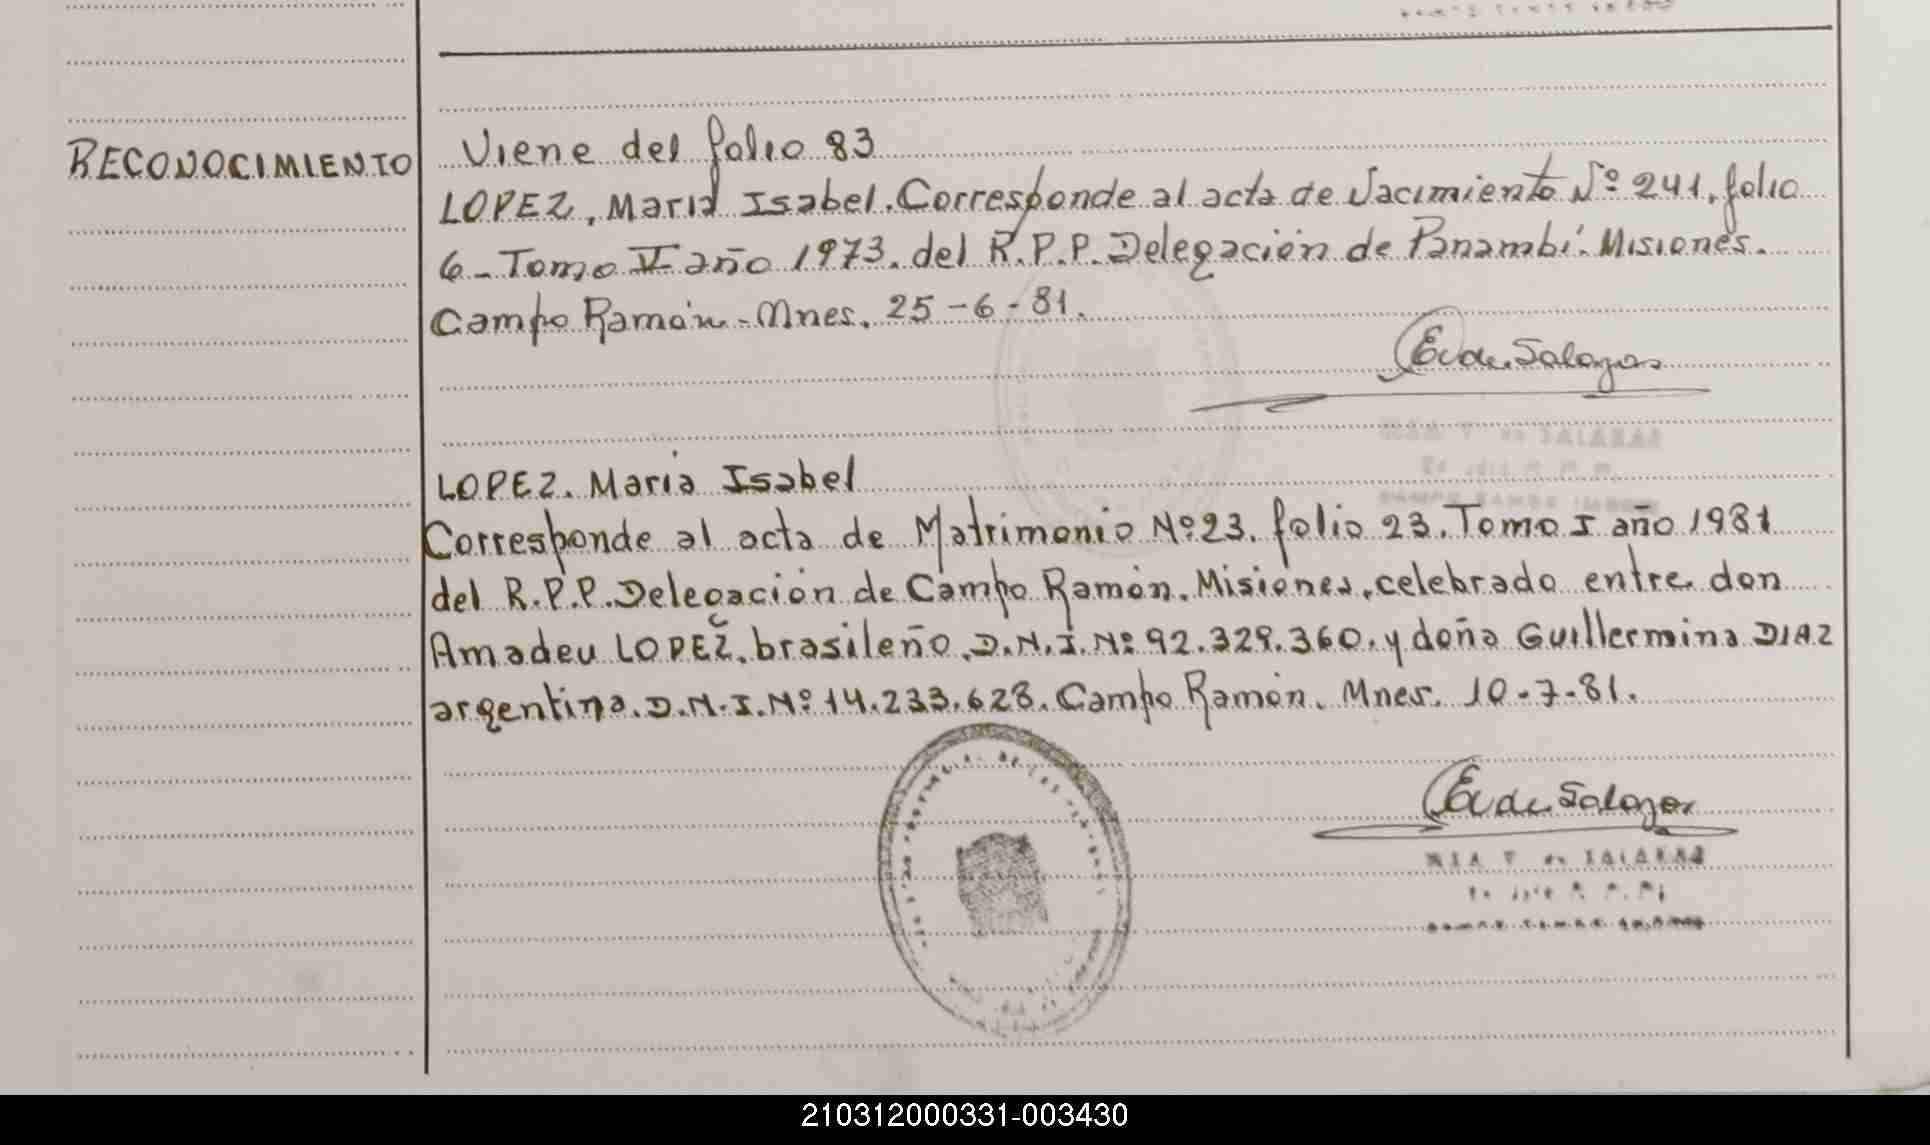 RECONOCIMIENTO
Viene del folio 83
LOPEZ, Maria Isabel. Corresponde al acta de Nacimiento Nº 241, folio
6 - Tomo V año 1973. del R.P.P. Delegación de Panambí. Misiones.
Campo Ramón - Mnes. 25-6-81.
E. V. de Salazar
LOPEZ. Maria Isabel
Corresponde al acta de Matrimonio Nº 23. folio 23. Tomo I año 1981
del R.P.P. Delegación de Campo Ramón. Misiones, celebrado entre don
Amadeu LOPEZ, brasileño, D.N.I. Nº 92.329.360. y doña Guillermina DIAZ
argentina. D.N.I. Nº 14.233.628. Campo Ramón. Mnes. 10-7-81.
E. V. de Salazar
de SALAZAR
210312000331-003430